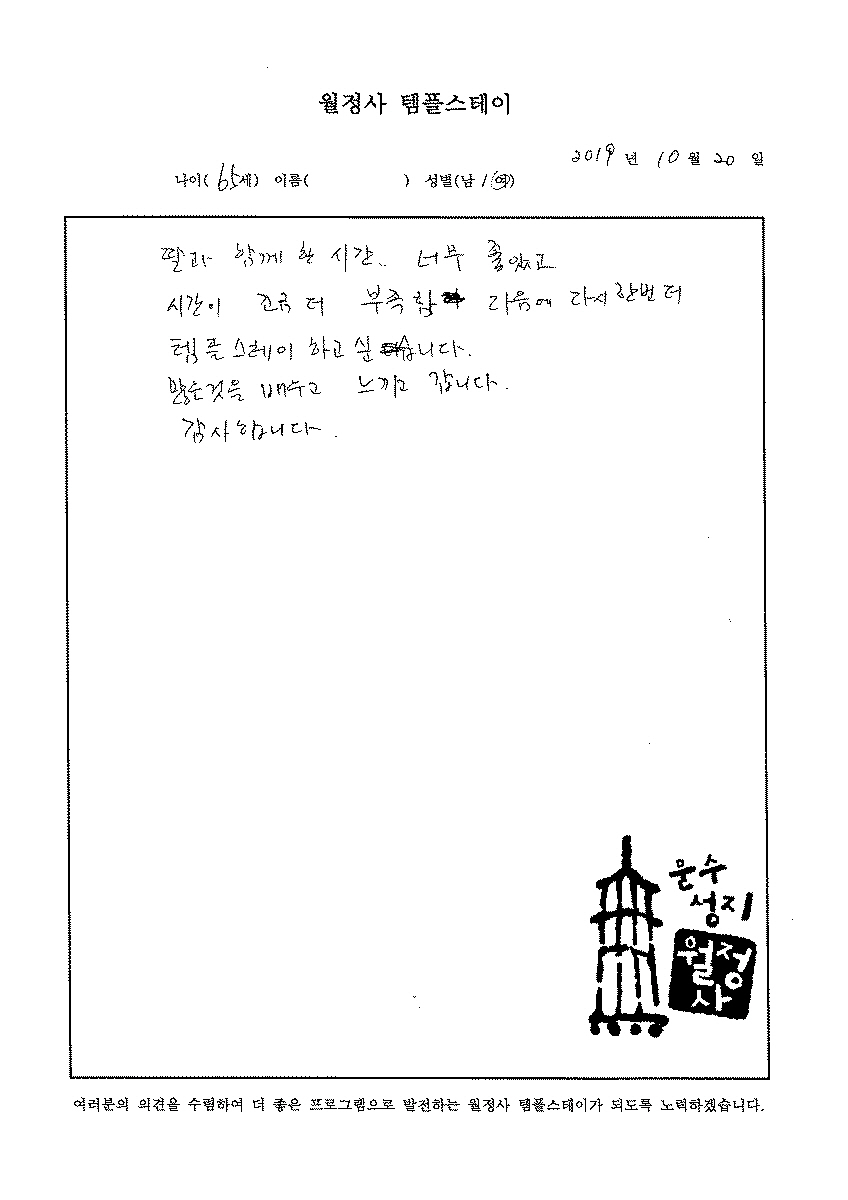 월정사 템플스테이
2019 년 10 월 20 일
나이( 65세) 이름( ) 성별(남 / 여)
딸과 함께 한 시간.. 너무 좋았고
시간이 조금 더 부족함 다음에 다시 한번 더
템플스레이 하고 싶습니다.
많은것을 배우고 느끼고 갑니다.
감사합니다.
문수
성지
월정
사
여러분의 의견을 수렴하여 더 좋은 프로그램으로 발전하는 월정사 템플스테이가 되도록 노력하겠습니다.